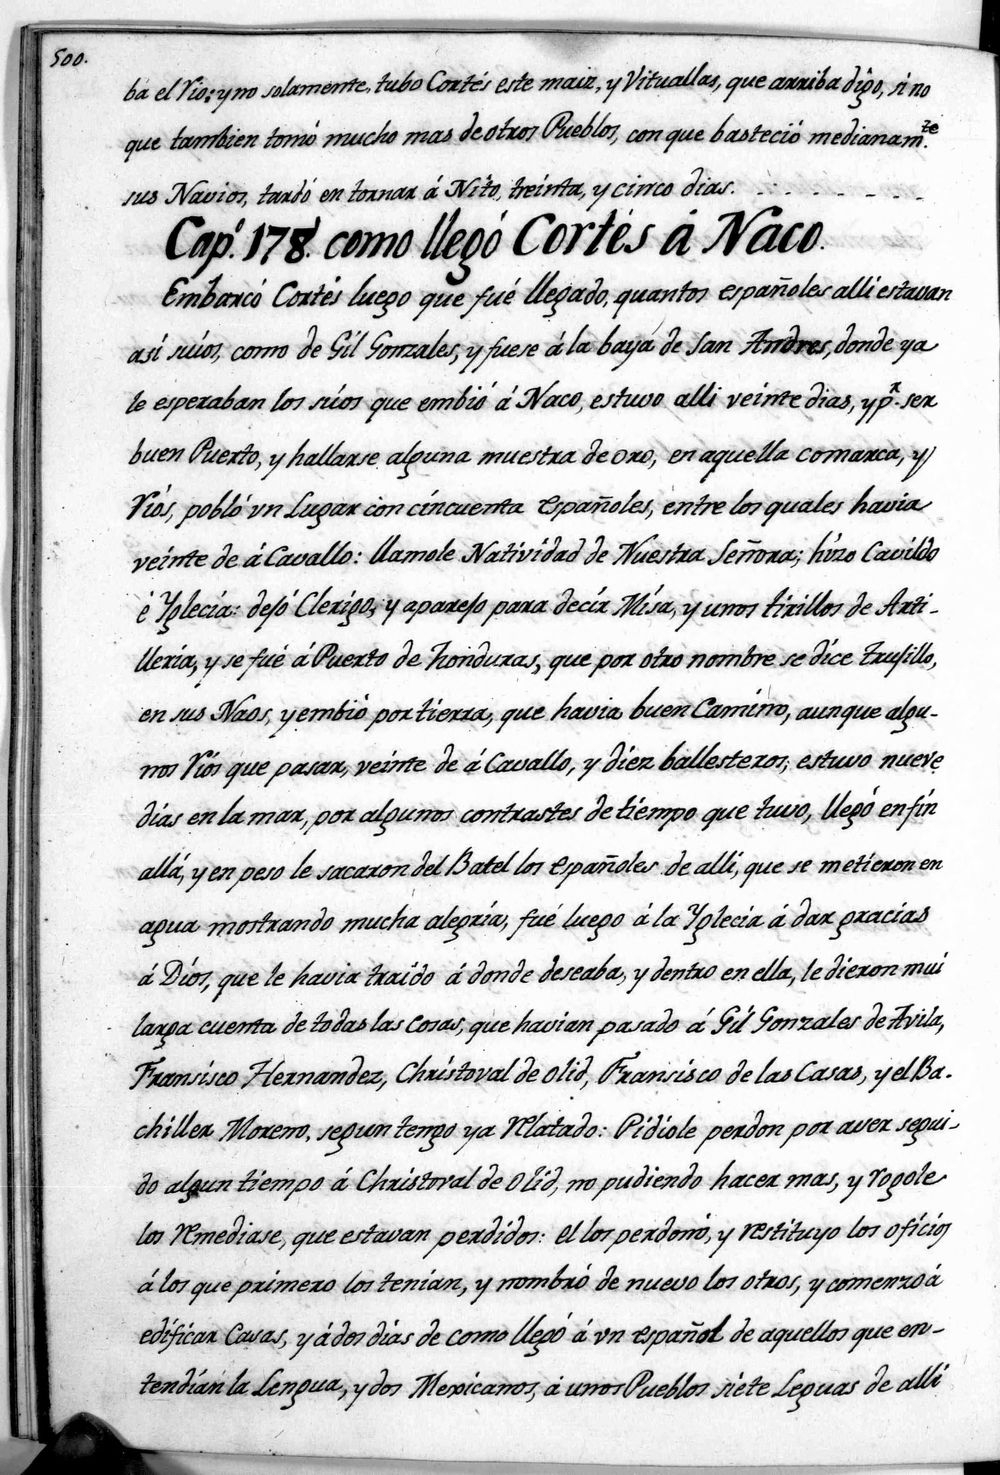 500.
ba el Rio: y no solamente, tubo Cortés este maiz, y Vituallas, que arriba digo, si no
que tambien tomó mucho mas de otros Pueblos, con que basteció medianam.te
sus Navios, tardó en tornar á Nito, treinta, y cinco dias. . - . - . - - -
Cap.o 178. como llegó Cortés á Naco.
Embarcó Cortés luego que fué llegado, quantos españoles alli estavan
asi súios, como de Gil Gonzales, y fuese á la baya de San Andres, donde ya
le esperaban los súios que embió á Naco, estuvo alli veinte dias, y p.r ser
buen Puerto, y hallarse alguna muestra de oro, en aquella comarca, y
Riós, pobló vn Lugar con cincuenta españoles, entre los quales havia
veinte de á Cavallo: llamole Natividad de Nuestra Señora; hizo Cavildo
é Yglecia: dejó Clerigo, y aparejo para decir Misa, y unos tirillos de Arti-
lleria, y se fué á Puerto de honduras, que por otro nombre se dice trujillo,
en sus Naos, y embió por tierra, que havia buen Camino, aunque algu-
nos Riós que pasar, veinte de á Cavallo, y diez ballesteros; estuvo nueve
dias en la mar, por algunos contrastes de tiempo que tuvo, llegó en fin
allá, y en peso le sacaron del Batel los españoles de alli, que se metieron en
agua mostrando mucha alegria, fué luego á la Yglecia á dar gracias
á Dios, que le havia traido á donde deseaba, y dentro en ella, le dieron mui
larga cuenta de todas las cosas, que havian pasado á Gil Gonzales de Avila,
Fransisco Hernandez, Christoval de olid, Fransisco de las Casas, y el Ba-
chiller Moreno, segun tengo ya Relatado: Pidiole perdon por aver segui-
do algun tiempo á Christoval de olid, no pudiendo hacer mas, y rogole
los Remediase, que estavan perdidos: el los perdonó, y restituyo los oficios
á los que primero los tenian, y nombró de nuevo los otros, y comenzo á
edificar Casas, y á dos dias de como llegó á vn español de aquellos que en-
tendian la Lengua, y dos Mexicanos, á unos Pueblos siete Leguas de alli